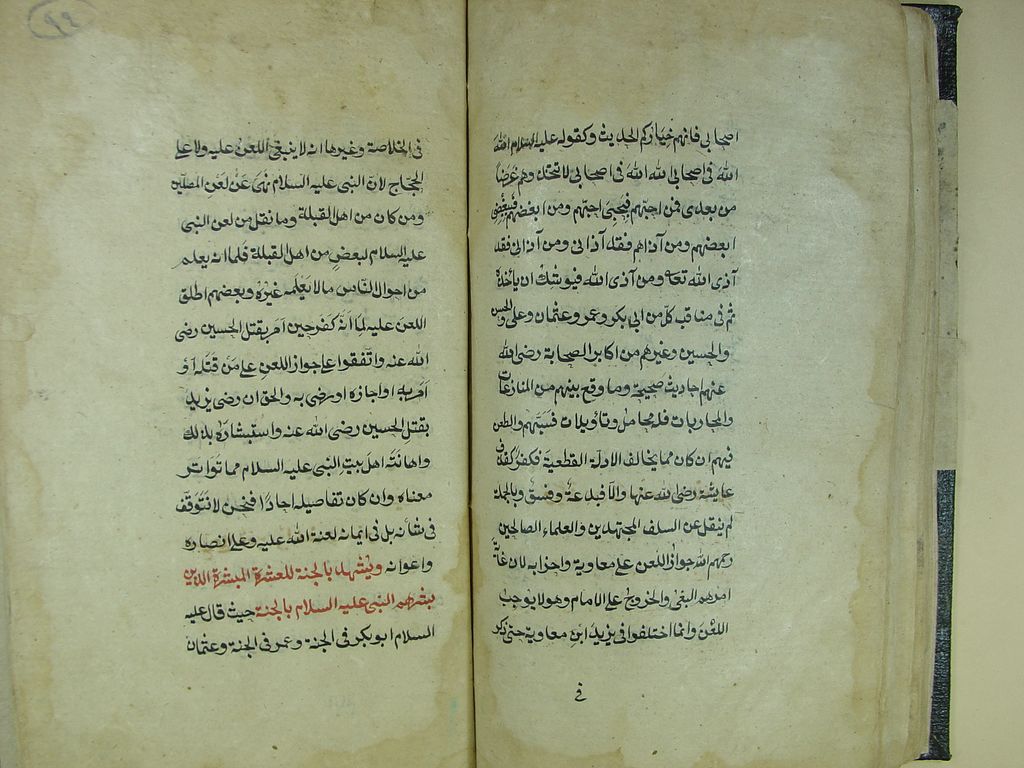 اصحابى فانهم خياركم الحديث وكقوله عليه السلام الله
الله فى اصحابى الله الله فى اصحابى لا تتخذوهم غرضًا
من بعدى فمن احبّهم فبحبى احبّهم ومن ابغضهم فببغضى
ابغضهم ومن آذاهم فقد آذانى ومن آذانى فقد
آذى الله تعا ومن آذى الله فيوشك ان يأخذه
ثم فى مناقب كلّ من ابى بكر وعمر وعثمان وعلى والحسن
والحسين وغيرهم من اكابر الصحابة رضى الله
عنهم احاديث صحيحة وما وقع بينهم من المنازعات
والمحاربات فله محامل وتأويلات فسبّهم والطعن
فيهم ان كان مما يخالف الادلة القطعية فكفر كقذف
عايشة رضى الله عنها والا فبدعة وفسق وبالجملة
لم ينقل عن السلف المجتهدين والعلماء الصالحين
رحمهم الله جواز اللعن على معاوية واحزابه لان غاية
امرهم البغى والخروج على الامام وهو لا يوجب
اللعن وانما اختلفوا فى يزيد ابن معاوية حتى ذكر
فى
٩٤
فى الخلاصة وغيرها انه لا ينبغى اللعن عليه ولا على
الحجّاج لانّ النبى عليه السلام نهى عن لعن المصلين
ومن كان من اهل القبلة وما نقل من لعن النبى
عليه السلام لبعضٍ من اهل القبلة فلما انه يعلم
من احوال الناس ما لا يعلمه غيره وبعضهم اطلق
اللعن عليه لما انّه كفر حين امر بقتل الحسين رضى
الله عنه واتفقوا على جواز اللعن على من قتله او
امر به او اجازه او رضى به والحق ان رضى يزيد
بقتل الحسين رضى الله عنه واستبشاره بذلك
واهانته اهل بيت النبى عليه السلام مما تواتر
معناه وان كان تفاصيله احادًا فنحن لا نتوقف
فى شانه بل فى ايمانه لعنة الله عليه وعلى انصاره
واعوانه ونشهد بالجنة للعشرة المبشرة الذين
بشرهم النبى عليه السلام بالجنة حيث قال عليه
السلام ابو بكر فى الجنة وعمر فى الجنة وعثمان